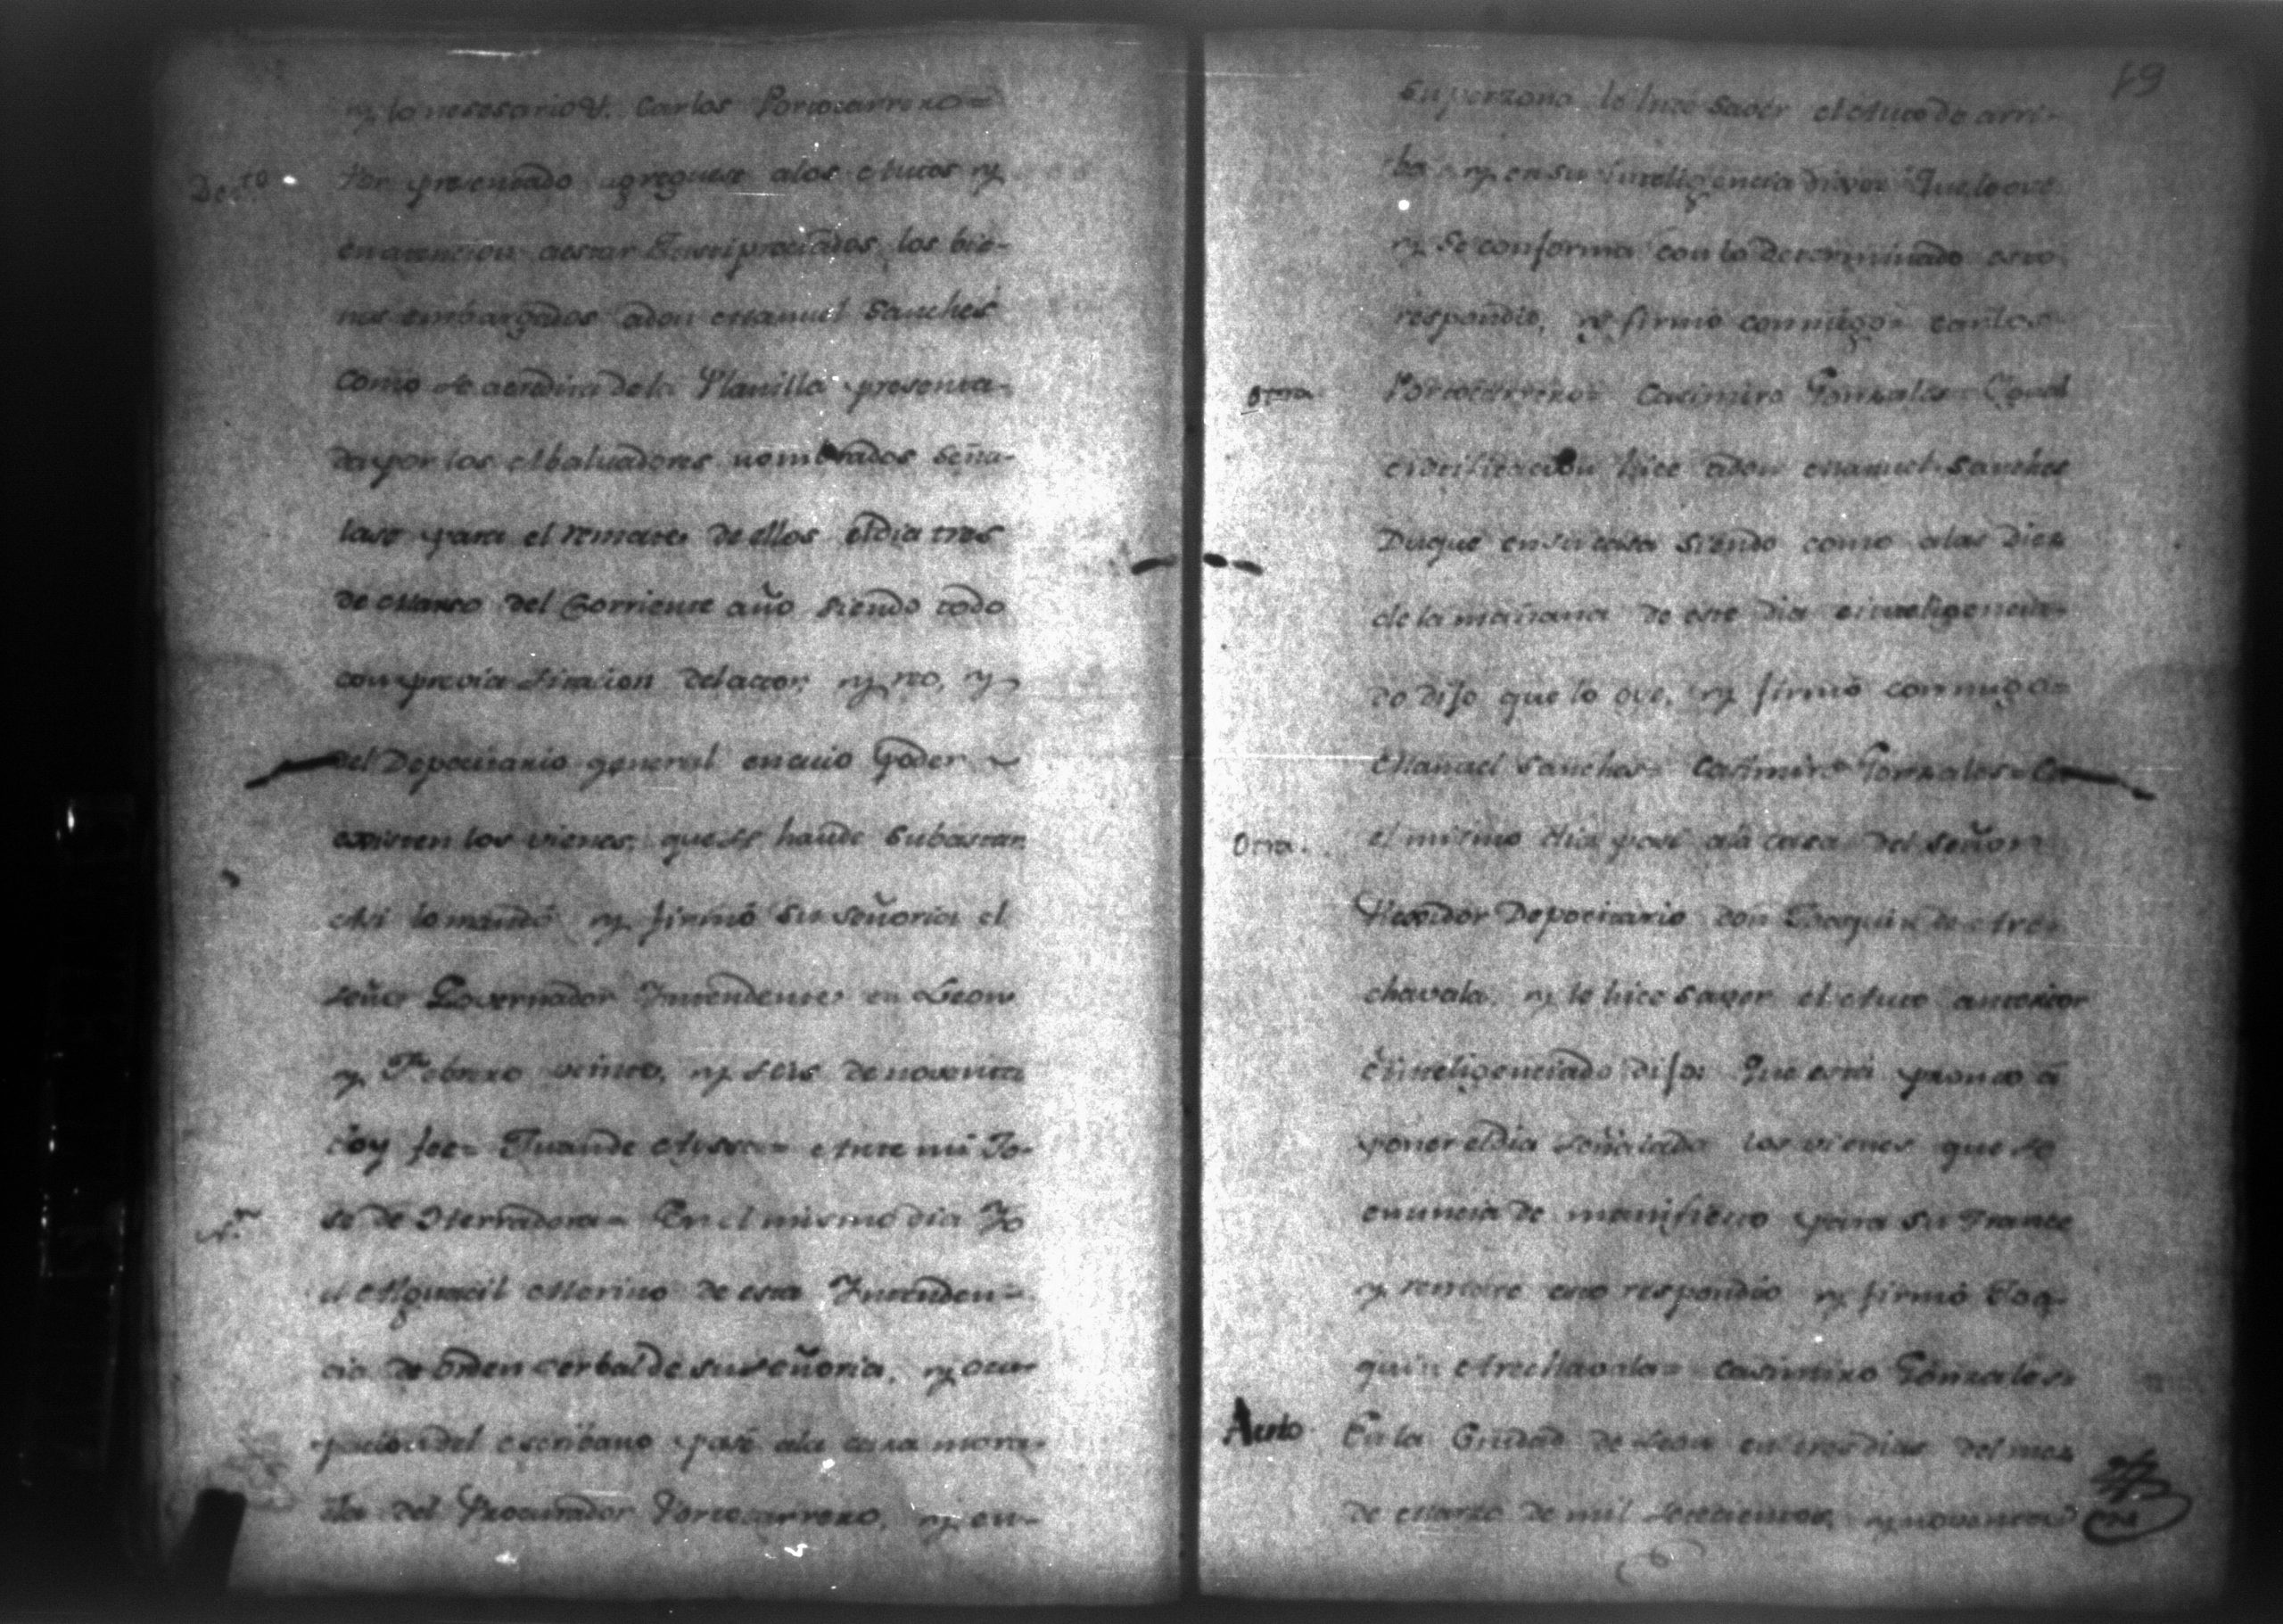 y lo nesesario V. Carlos Portocarrero=
Dec.to Por presentado agreguese alos Autos y
en atencion a estar Justipreciados los bie-
nes embargados adon Manuel Sanches
como se acredita dela Planilla presenta-
da por los Abaluadores nombrados Seña-
lase para el remate de ellos eldia tres
de Marzo del Corriente año siendo todo
con previa sitacion delactor, y reo, y
del Depocitario general encuio Poder
existen los vienes que se hande Subastar
Asi lo mandó y firmó Su señoria el
señor Governador Yntendente en Leon
y Febrero veinte, y seis de noventa
doy fee= Juande Ayssa= Ante mi Jo-
N.n se de Herradora= En el mismo dia Yo
el Alguacil Merino de esta Yntenden-
cia de orden verbal de su señoria, y ocu-
pacion del escribano pasé ala casa mora-
da del Procurador Portocarrero, y en-
19
Su perzona le hice saver el Auto de arri-
ba y en su inteligencia dixo: Que lo oye
y Se conforma con lo determinado esto
respondió, y firmó conmigo= Carlos
Otra Portocarrero= Casimiro Gonzales= Ygual
notificacion hice adon Manuel Sanches
Duque en su casa siendo como alas Diez
de la mañana de este dia e inteligencia-
do dijo que lo oye, y firmó conmigo=
Manuel Sanches= Casimiro Gonzales= En
Otra. el mismo dia pasé ala casa del señor
Regidor Depocitario don Joaquin de Are-
chavala, y le hice saver el Auto anterior
e inteligenciado dijo: Que está pronto á
poner eldia señalado los vienes que se
enuncia de manifiesto para su Trance
y remate esto respondió y firmó Joa-
quin Arechavala= Casimiro Gonzales=
Auto En la Ciudad de Leon en tres dias del mes
de Marzo de mil setecientos, y noventa